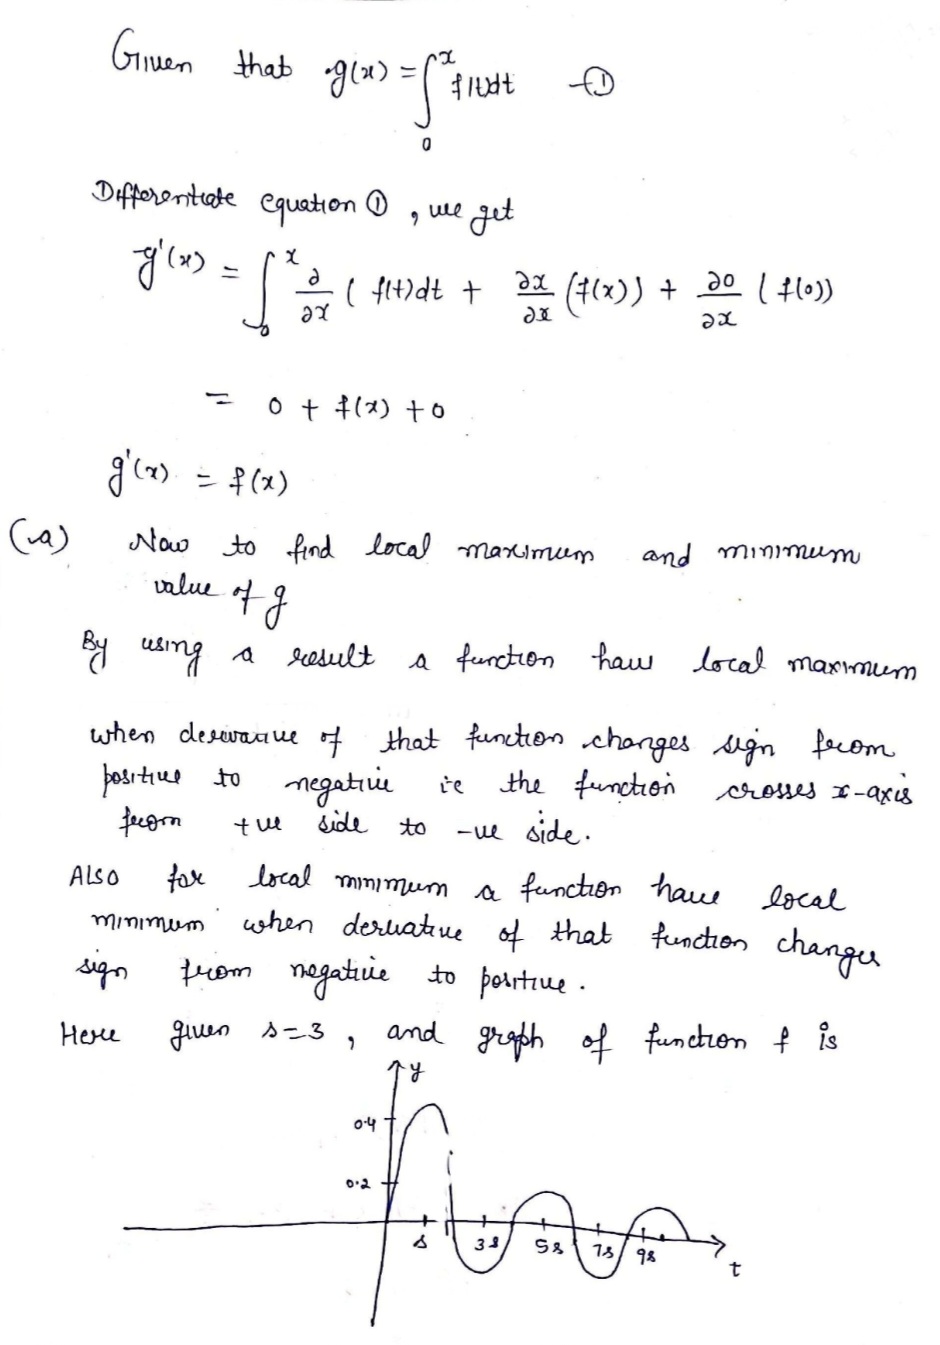 Given that g(x) = ∫₀ˣ f(t)dt —①
Differentiate equation ①, we get
g'(x) = ∫₀ˣ ∂/∂x ( f(t)dt + ∂x/∂x (f(x)) + ∂0/∂x ( f(0))
= 0 + f(x) + 0
g'(x) = f(x)
(a) Now to find local maximum and minimum
value of g
By using a result a function have local maximum
when derivative of that function changes sign from
positive to negative ie the function crosses x-axis
from +ve side to -ve side.
Also for local minimum a function have local
minimum when derivative of that function changes
sign from negative to positive.
Here given s=3, and graph of function f is
y
0.4
0.2
s 3s 5s 7s 9s
t